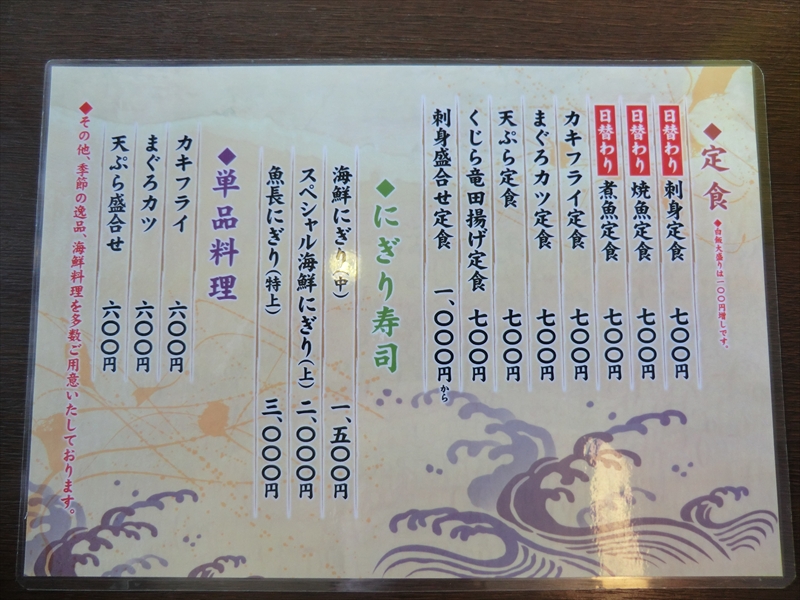 ◆定食
◆白飯大盛りは一〇〇円増しです。
日替わり 刺身定食 七〇〇円
日替わり 焼魚定食 七〇〇円
日替わり 煮魚定食 七〇〇円
カキフライ定食 七〇〇円
まぐろカツ定食 七〇〇円
天ぷら定食 七〇〇円
くじら竜田揚げ定食 七〇〇円
刺身盛合せ定食 一、〇〇〇円から
◆にぎり寿司
海鮮にぎり(中) 一、五〇〇円
スペシャル海鮮にぎり(上) 二、〇〇〇円
魚長にぎり(特上) 三、〇〇〇円
◆単品料理
カキフライ 六〇〇円
まぐろカツ 六〇〇円
天ぷら盛合せ 六〇〇円
◆その他、季節の逸品、海鮮料理を多数ご用意いたしております。